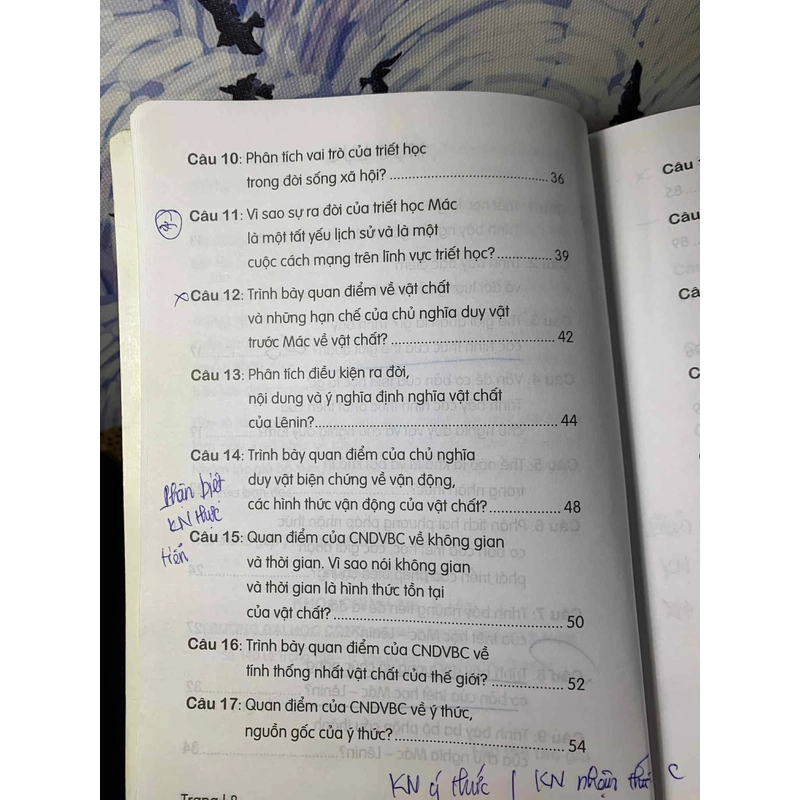 Câu 10: Phân tích vai trò của triết học
trong đời sống xã hội? ........................................ 36
Câu 11: Vì sao sự ra đời của triết học Mác
là một tất yếu lịch sử và là một
cuộc cách mạng trên lĩnh vực triết học? .............. 39
Câu 12: Trình bày quan điểm về vật chất
và những hạn chế của chủ nghĩa duy vật
trước Mác về vật chất? ........................................ 42
Câu 13: Phân tích điều kiện ra đời,
nội dung và ý nghĩa định nghĩa vật chất
của Lênin? ........................................ 44
Câu 14: Trình bày quan điểm của chủ nghĩa
duy vật biện chứng về vận động,
các hình thức vận động của vật chất? ................ 48
Phân biệt
KN thực
tiễn
Câu 15: Quan điểm của CNDVBC về không gian
và thời gian. Vì sao nói không gian
và thời gian là hình thức tồn tại
của vật chất? ........................................ 50
Câu 16: Trình bày quan điểm của CNDVBC về
tính thống nhất vật chất của thế giới? ................ 52
Câu 17: Quan điểm của CNDVBC về ý thức,
nguồn gốc của ý thức? ........................................ 54
KN ý thức / KN nhận thức
Câu
Câu